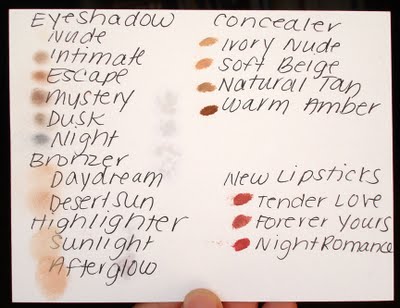 Eyeshadow
Nude
Intimate
Escape
Mystery
Dusk
Night
Bronzer
Daydream
Desert Sun
Highlighter
Sunlight
Afterglow
Concealer
Ivory Nude
Soft Beige
Natural Tan
Warm Amber
New Lipsticks
Tender Love
Forever Yours
Night Romance